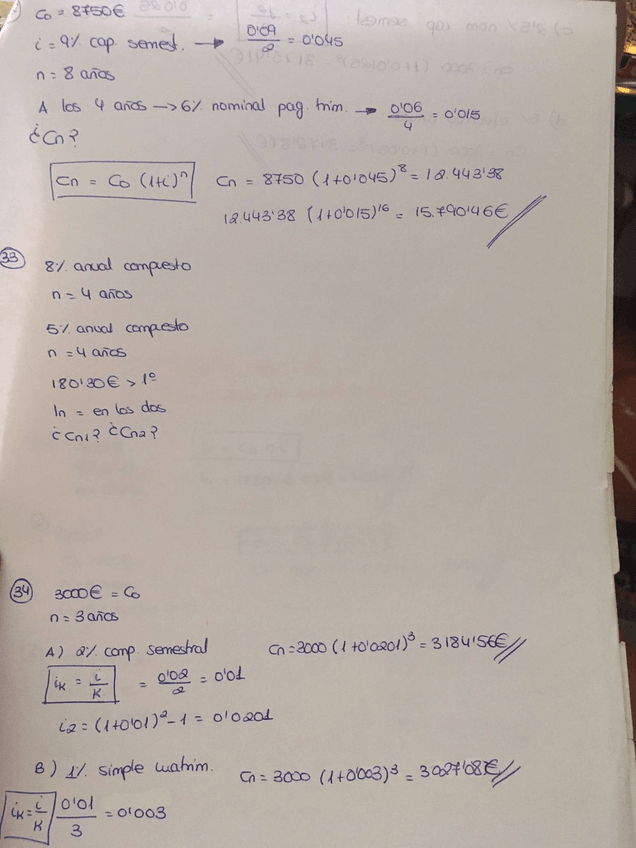 Co = 8750€
i = 9% cap. semest. → 0'09/2 = 0'045
n = 8 años
A los 4 años → 6% nominal pag. trim. → 0'06/4 = 0'015
¿Cn?
Cn = Co (1+i)^n Cn = 8750 (1+0'045)^8 = 12.443'38
12.443'38 (1+0'015)^16 = 15.790'46€
33
8% anual compuesto
n = 4 años
5% anual compuesto
n = 4 años
180'30€ > 1º
In = en los dos
¿Cn1? ¿Cn2?
34 3000€ = Co
n = 3 años
A) 2% comp. semestral Cn = 3000 (1+0'0201)^3 = 3184'56€
ik = i/k = 0'02/2 = 0'01
i2 = (1+0'01)^2 - 1 = 0'0201
B) 1% simple cuatrim. Cn = 3000 (1+0'003)^3 = 3027'08€
ik = i/k 0'01/3 = 0'003